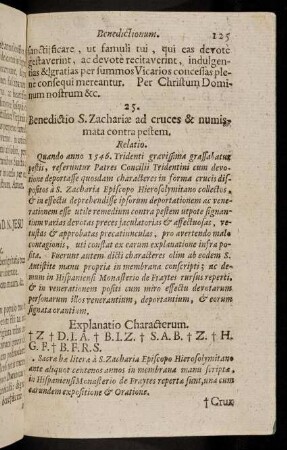 Benedictionum. 125
sanctificare, ut famuli tui, qui eas devote
gestaverint, ac devote recitaverint, indulgen-
tias & gratias per summos Vicarios concessas ple-
ne consequi mereantur. Per Christum Domi-
num nostrum &c.
25.
Benedictio S. Zachariæ ad cruces & numis-
mata contra pestem.
Relatio.
Quando anno 1546. Tridenti gravissima grassabatur
pestis, referuntur Patres Concilii Tridentini cum devo-
tione deportasse quosdam characteres in forma crucis dis-
positos à S. Zacharia Episcopo Hierosolymitano collectos,
& in effectu deprehendisse ipsorum deportationem ac vene-
rationem esse utile remedium contra pestem utpote signan-
tium varias devotas preces jaculatorias & affectuosas, ve-
tustas & approbatas precatiunculas, pro avertendo malo
contagionis, uti constat ex earum explanatione infra po-
sita. Fuerunt autem dicti characteres olim ab eodem S.
Antistite manu propria in membrana conscripti; ac de-
mum in Hispaniensi Monasterio de Fraytes rursus reperti,
& in venerationem positi cum miro effectu devotarum
personarum illos venerantium, deportantium, & eorum
signata orantium.
Explanatio Characterum.
† Z † D. I. A. † B. I. Z. † S. A. B. † Z. † H.
G. F. † B. F. R. S.
Sacra hæ litera à S. Zacharia Episcopo Hierosolymitano
ante aliquot centenos annos in membrana manu scriptæ,
in Hispaniensi Monasterio de Fraytes reportæ sunt, una cum
earundem expositione & Oratione.
† Crux